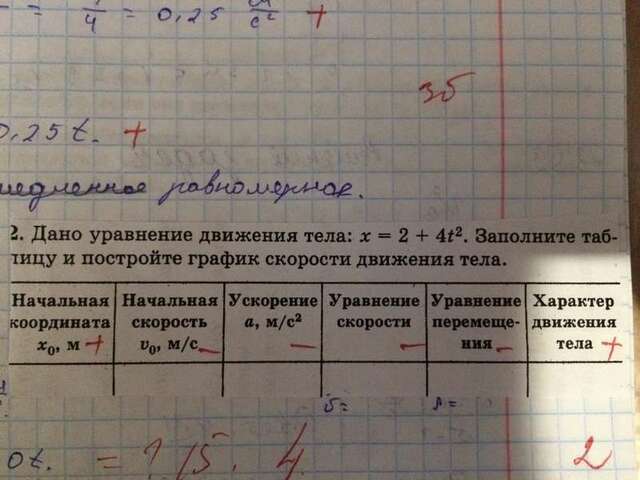 = 1/4 = 0,25 м/с² +
3б
0,25t. +
равномерное.
2. Дано уравнение движения тела: x = 2 + 4t². Заполните таб-
лицу и постройте график скорости движения тела.
Начальная координата x₀, м + Начальная скорость v₀, м/с – Ускорение a, м/с² – Уравнение скорости – Уравнение перемеще-ния – Характер движения тела +
0t. =
2